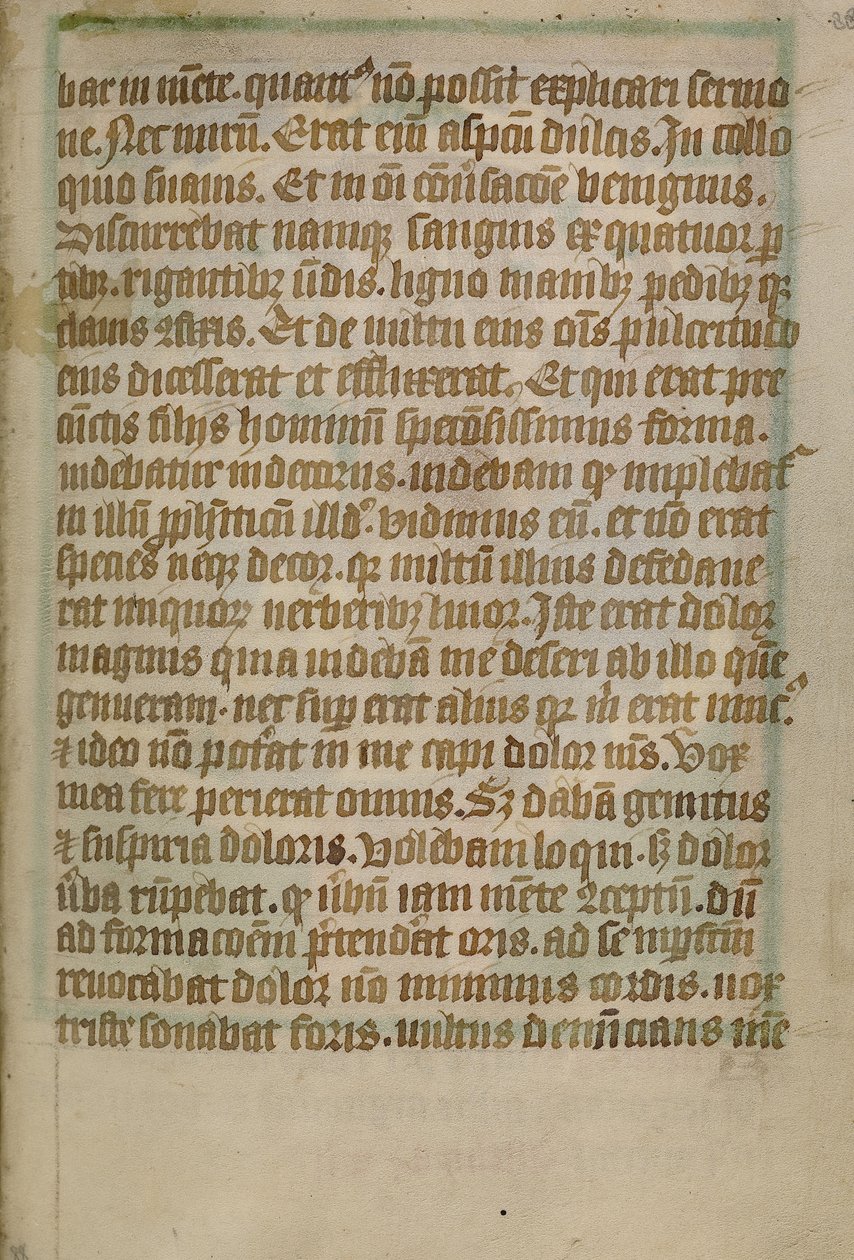 bar in mēte. quantꝰ nō possit explicari sermo
ne. Nec mirū. Erat eni᷒ aspcu᷒ dulcis. In collo
quio suauis. Et in oī cōuˢsacōe benignus.
Discurrebat namqꝫ sanguis ex quatuor ꝑ
tibꝫ. rigantibꝫ ūdis. ligno manibꝫ pedibꝫ qꝫ
clauis ꝯfixis. Et de uultu eius oīs pulcritudo
eius dicesserat et effluxerat. Et qui erat pre
cūctis filijs hominū speciōsissimus forma.
uidebatur indecorus. uidebam qꝛ implebatᷣ
in illū ꝓph̄eticū illdꝰ. vidimus eū. et nō erat
species neqꝫ decor. qꝛ uultū illius defedaue
rat iniquorꝝ uerberibꝫ liuor. Iste erat dolor
magnus quia uidebā me deseri ab illo quē
genueram. nec suꝑ erat alius qꝛ m̄ erat unicꝰ.
⁊ ideo nō potˢat in me capi dolor m̄s. Vox
mea fere perierat omnis. Sꝫ dabā gemitus
⁊ suspiria doloris. Volebam loqui. sꝫ dolor
ūba rūpebat. qꝛ ūbū iam mēte ꝯceptū. dū
ad formacoēm ꝓtendˢat oris. ad se imꝑfctm̄
reuocabat dolor nō minimus cordis. uox
triste sonabat foris. uultus denūcians mēte